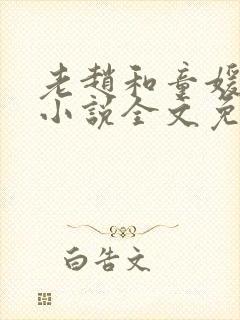 老趙和童媛
小說全文免
白告文